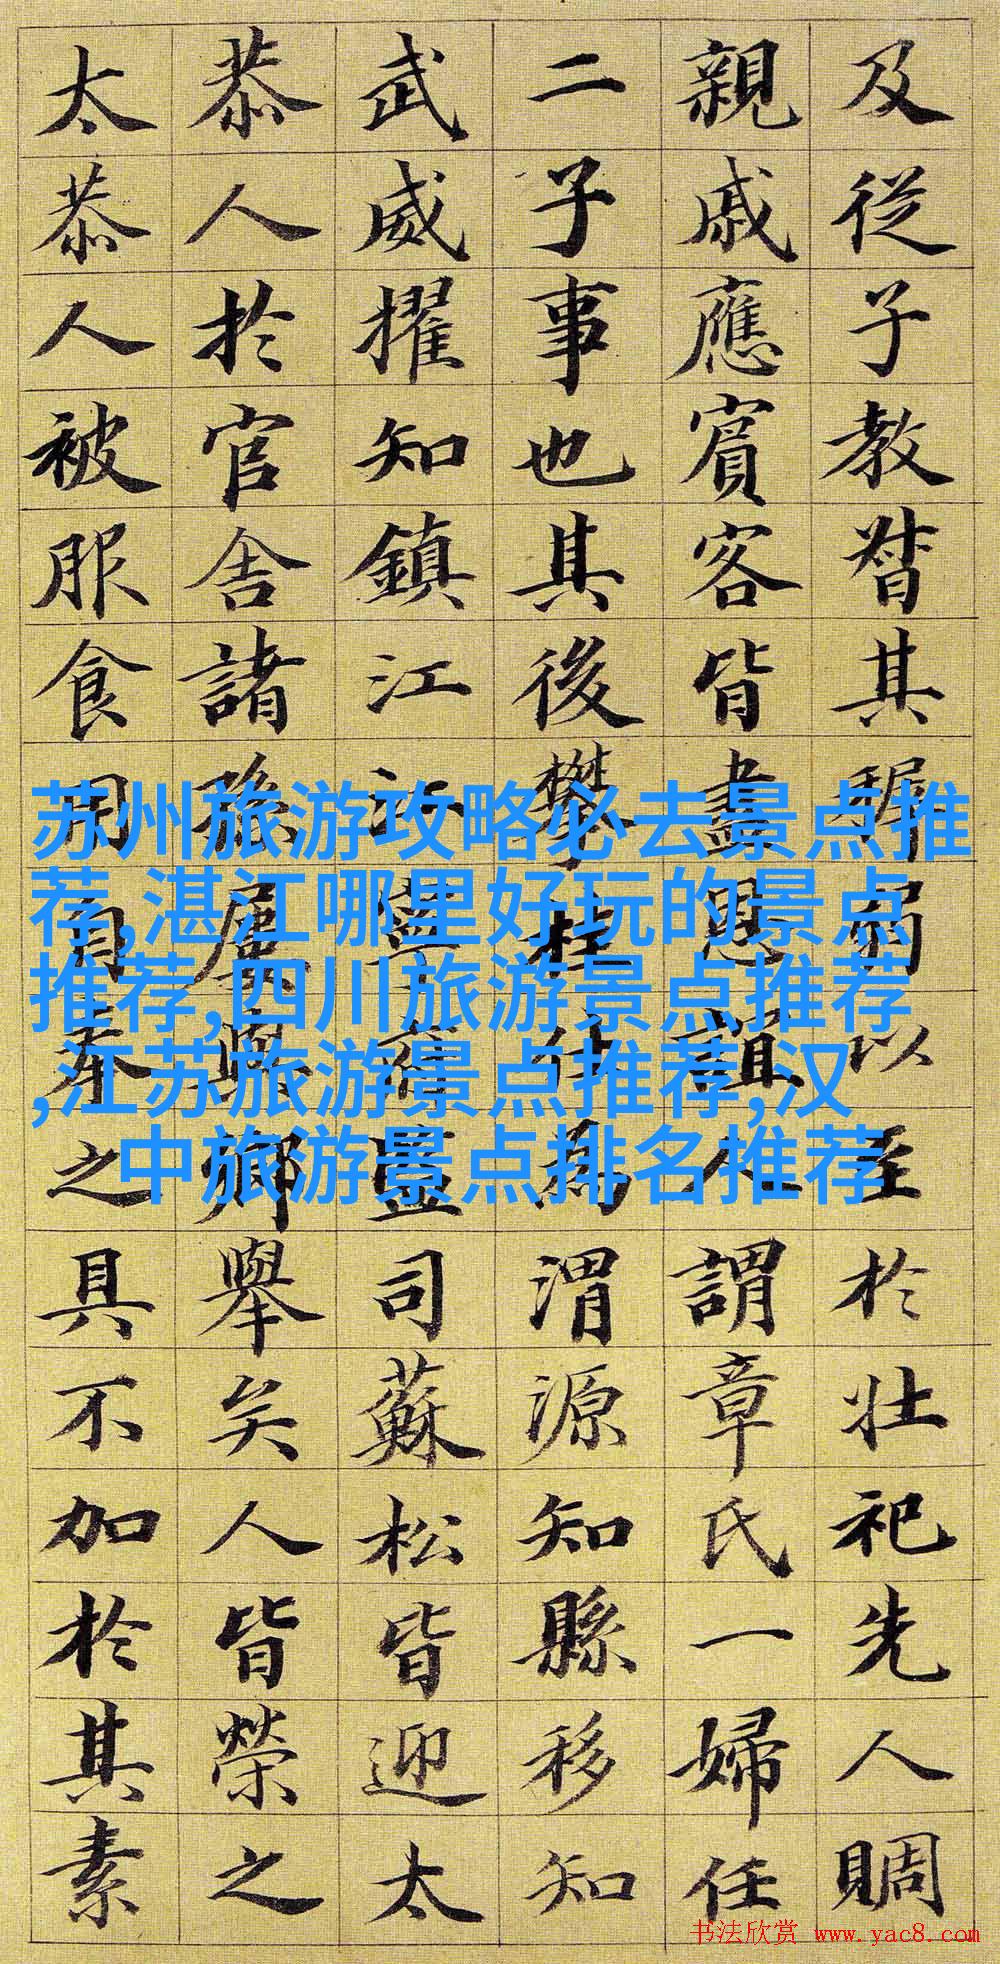 及從子教督其孱弱以至於壯祀先人賙
親戚應賓客皆盡恩誼人謂章氏一婦任
二子事也其後攀桂仕為渭源知縣移知
武威擢知鎮江江寧府監司蘇松皆迎太
恭人於官舍諸孫與鄉舉矣人皆榮之
太恭人被服食用自奉之具不加於其素
苏州旅游攻略必去景点推
荐,湛江哪里好玩的景点
推荐,四川旅游景点推荐
,江苏旅游景点推荐,汉
中旅游景点排名推荐
书法欣赏 www.yac8.com